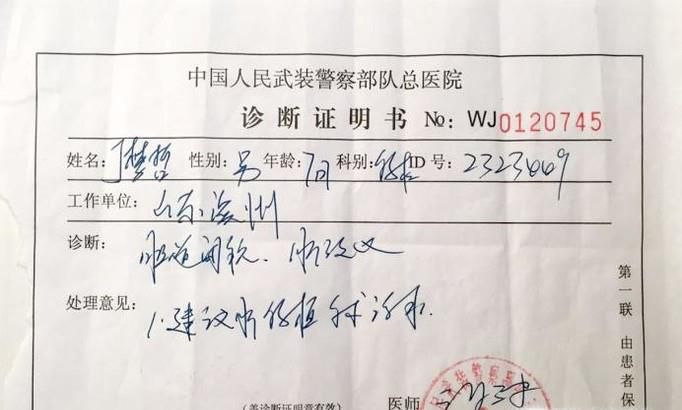 中国人民武装警察部队总医院
诊断证明书 No: WJ0120745
姓名: 性别: 男 年龄: 7月 科别: ID号: 2323669
工作单位: 山东滨州
诊断: 胆道闭锁、肝硬化
处理意见: 1.建议行肝植手术治疗.
第一联 由患者保
医师
(盖诊断证明章有效)